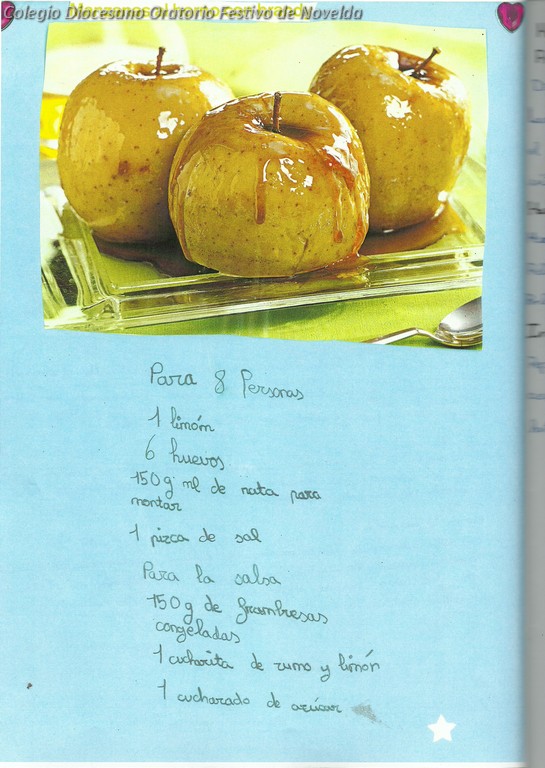 Colegio Diocesano Oratorio Festivo de Novelda
Para 8 Personas
1 limón
6 huevos
150 g ml de nata para
montar
1 pizca de sal
Para la salsa
150 g de frambresas
congeladas
1 cucharita de zumo y limón
1 cucharado de azúcar